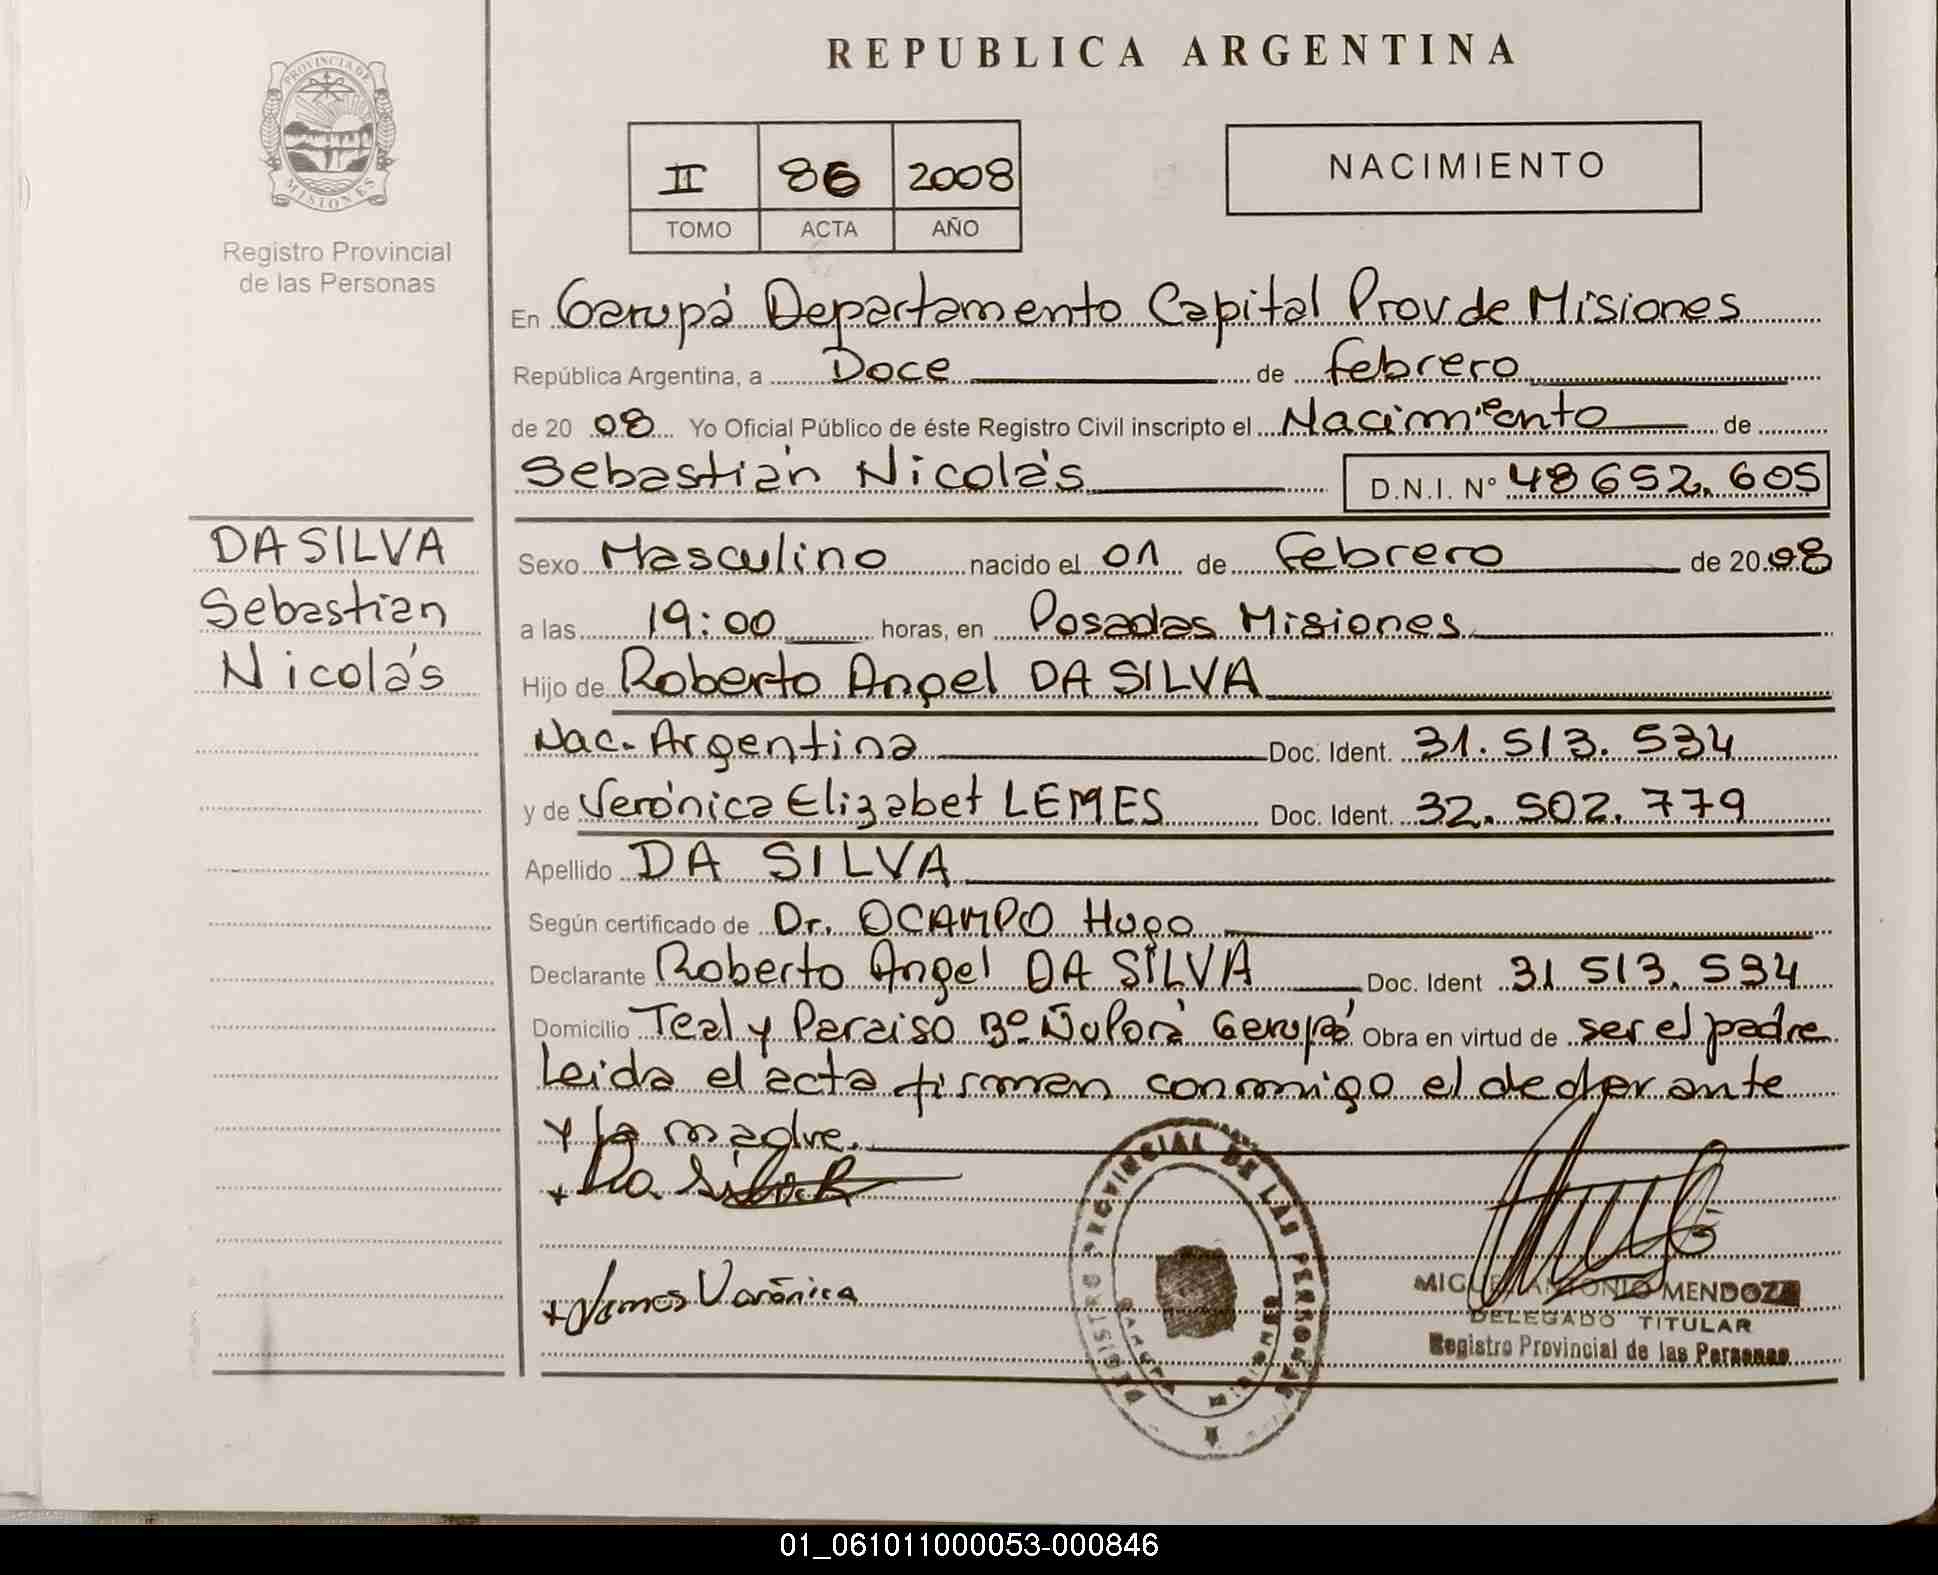 REPUBLICA ARGENTINA
PROVINCIA DE MISIONES
Registro Provincial
de las Personas
II 86 2008
TOMO ACTA AÑO
NACIMIENTO
En Garupá Departamento Capital Prov de Misiones
República Argentina, a Doce de febrero
de 2008 Yo Oficial Público de éste Registro Civil inscripto el Nacimiento de
Sebastián Nicolás D.N.I. Nº 48652.605
DA SILVA
Sebastian
Nicolás
Sexo Masculino nacido el 01 de Febrero de 2008
a las 19:00 horas, en Posadas Misiones
Hijo de Roberto Angel DA SILVA
Nac. Argentina Doc. Ident. 31.513.534
y de Verónica Elizabet LEMES Doc. Ident. 32.502.779
Apellido DA SILVA
Según certificado de Dr. OCAMPO Hugo
Declarante Roberto Angel DA SILVA Doc. Ident 31513.534
Domicilio Teal y Paraiso Bº Ñu Porá Garupá Obra en virtud de ser el padre
Leida el acta firman conmigo el declarante
y la madre.
+ Da Silva R
+ Lemes Verónica
REGISTRO PROVINCIAL DE LAS PERSONAS
MIGUEL ANTONIO MENDOZA
DELEGADO TITULAR
Registro Provincial de las Personas
01_061011000053-000846